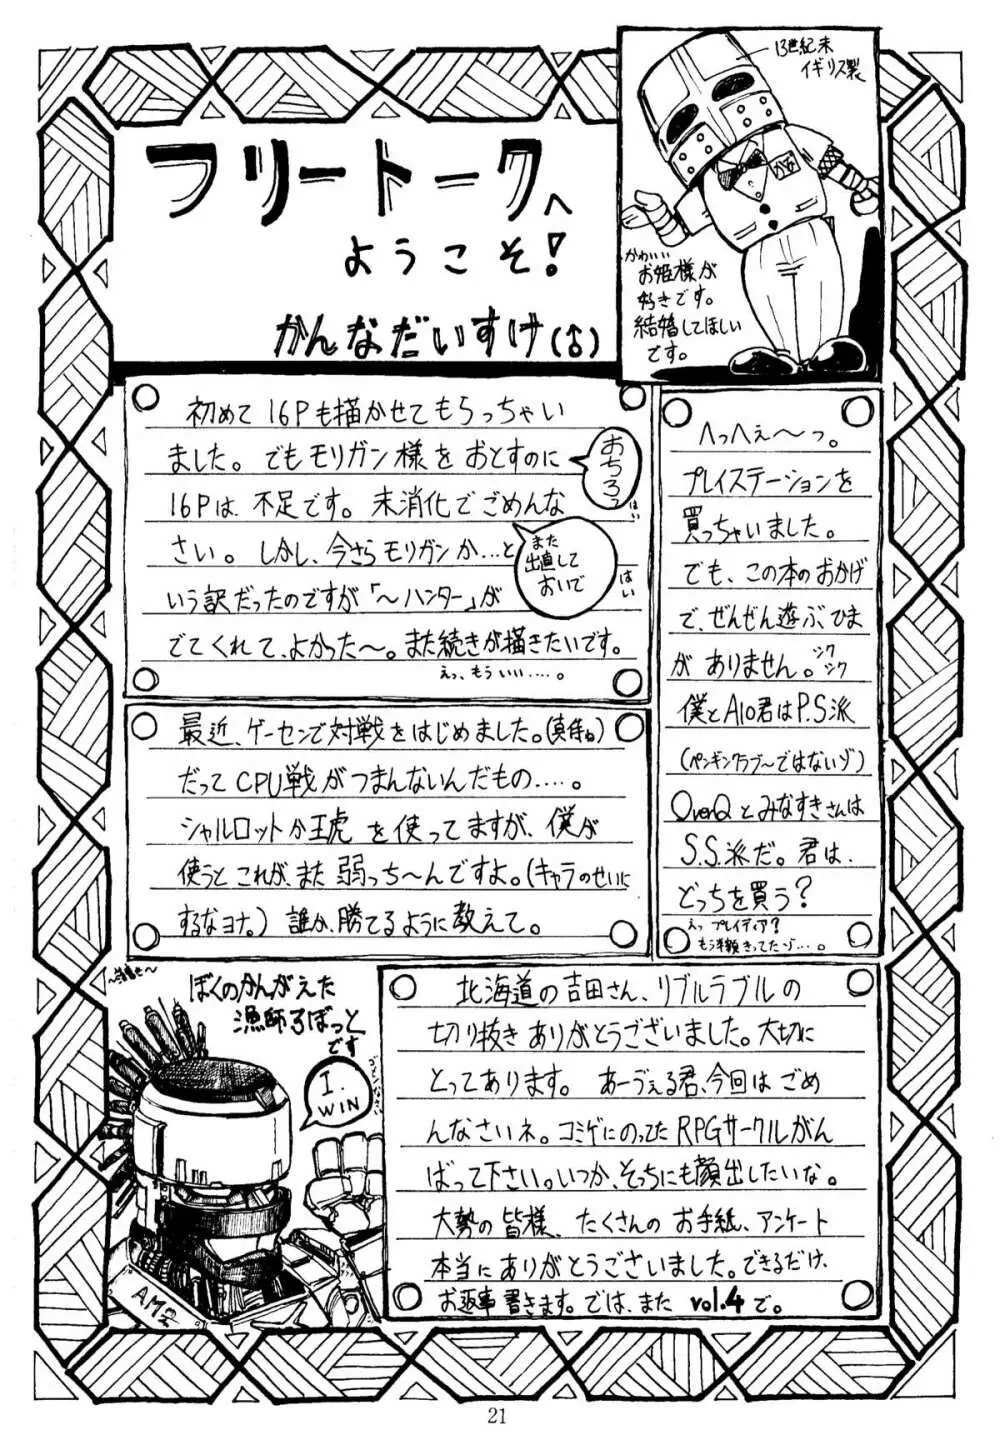 フリートークへ
ようこそ!
かんなだいすけ(♂)
13世紀末
イギリス製
かわいい
お姫様が
好きです。
結婚してほしい
です。
初めて16Pも描かせてもらっちゃい
ました。でもモリガン様をおとすのに
16Pは不足です。未消化でごめんな
さい。しかし、今さらモリガンか…と
いう訳だったのですが「〜ハンター」が
でてくれて、よかった〜。また続きが描きたいです。
えっ、もういい……。
おちろ
はい
また
出直して
おいで
はい
へっへぇ〜っ。
プレイステーションを
買っちゃいました。
でも、この本のおかげ
で、ぜんぜん遊ぶ、ひま
がありません。シクシク
僕とAlo君はP.S派
(ペンギンクラブ〜ではないゾ)
OverQとみなすきさんは
S.S.派だ。君は、
どっちを買う?
えっ プレイディア?
最近、ゲーセンで対戦をはじめました。
だってCPU戦がつまんないんだもの……。
シャルロットか王虎を使ってますが、僕が
使うとこれが、また弱っち〜んですよ。(キャラのせいに
するなヨナ。)誰か、勝てるように教えて。
ぼくのかんがえた
漁師ろぼっと
です
I.
WIN
北海道の吉田さん、リブルラブルの
切り抜きありがとうございました。大切に
とってあります。あーづぇる君、今回はごめ
んなさいネ。コミゲにのってたRPGサークルがん
ばって下さい。いつか、そっちにも顔出したいな。
大勢の皆様、たくさんのお手紙、アンケート
本当にありがとうございました。できるだけ、
お返事書きます。では、また vol.4で。
21